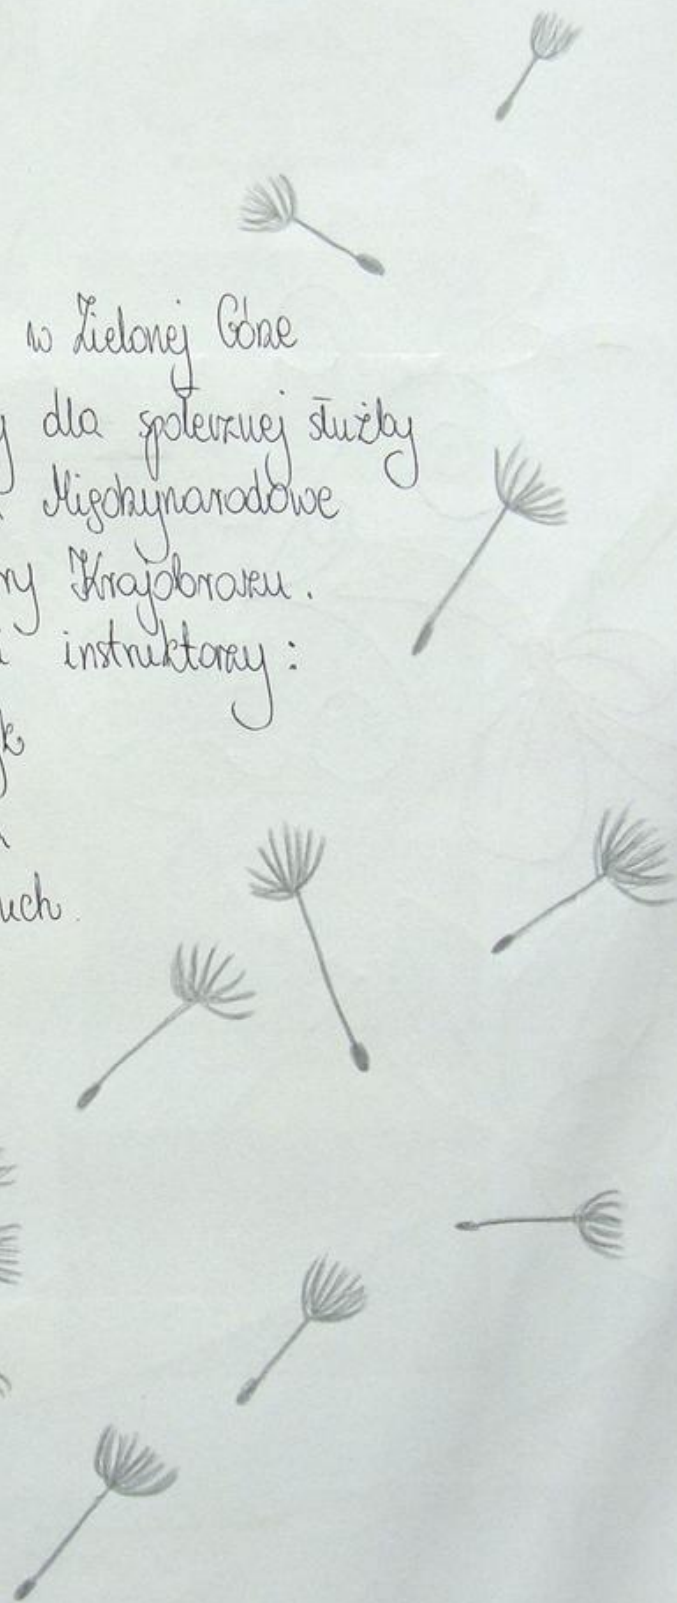 w Zielonej Górze
dla społecznej służby
Międzynarodowe
ry Krajobrazu.
i instruktorzy:
k
uch.